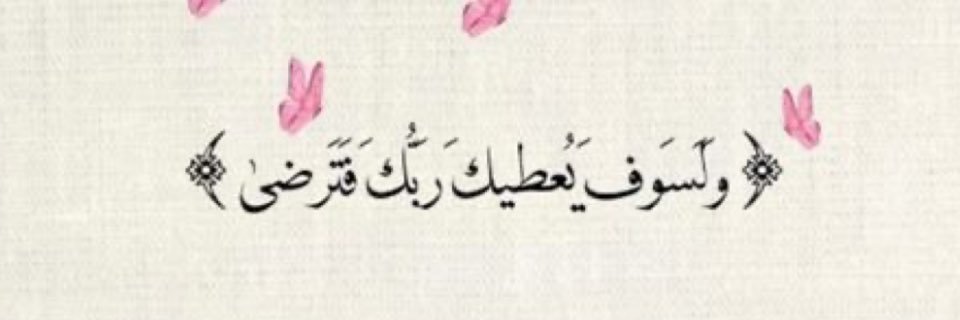 ﴿ وَلَسَوفَ يُعطيكَ رَبُّكَ فَتَرضىٰ ﴾